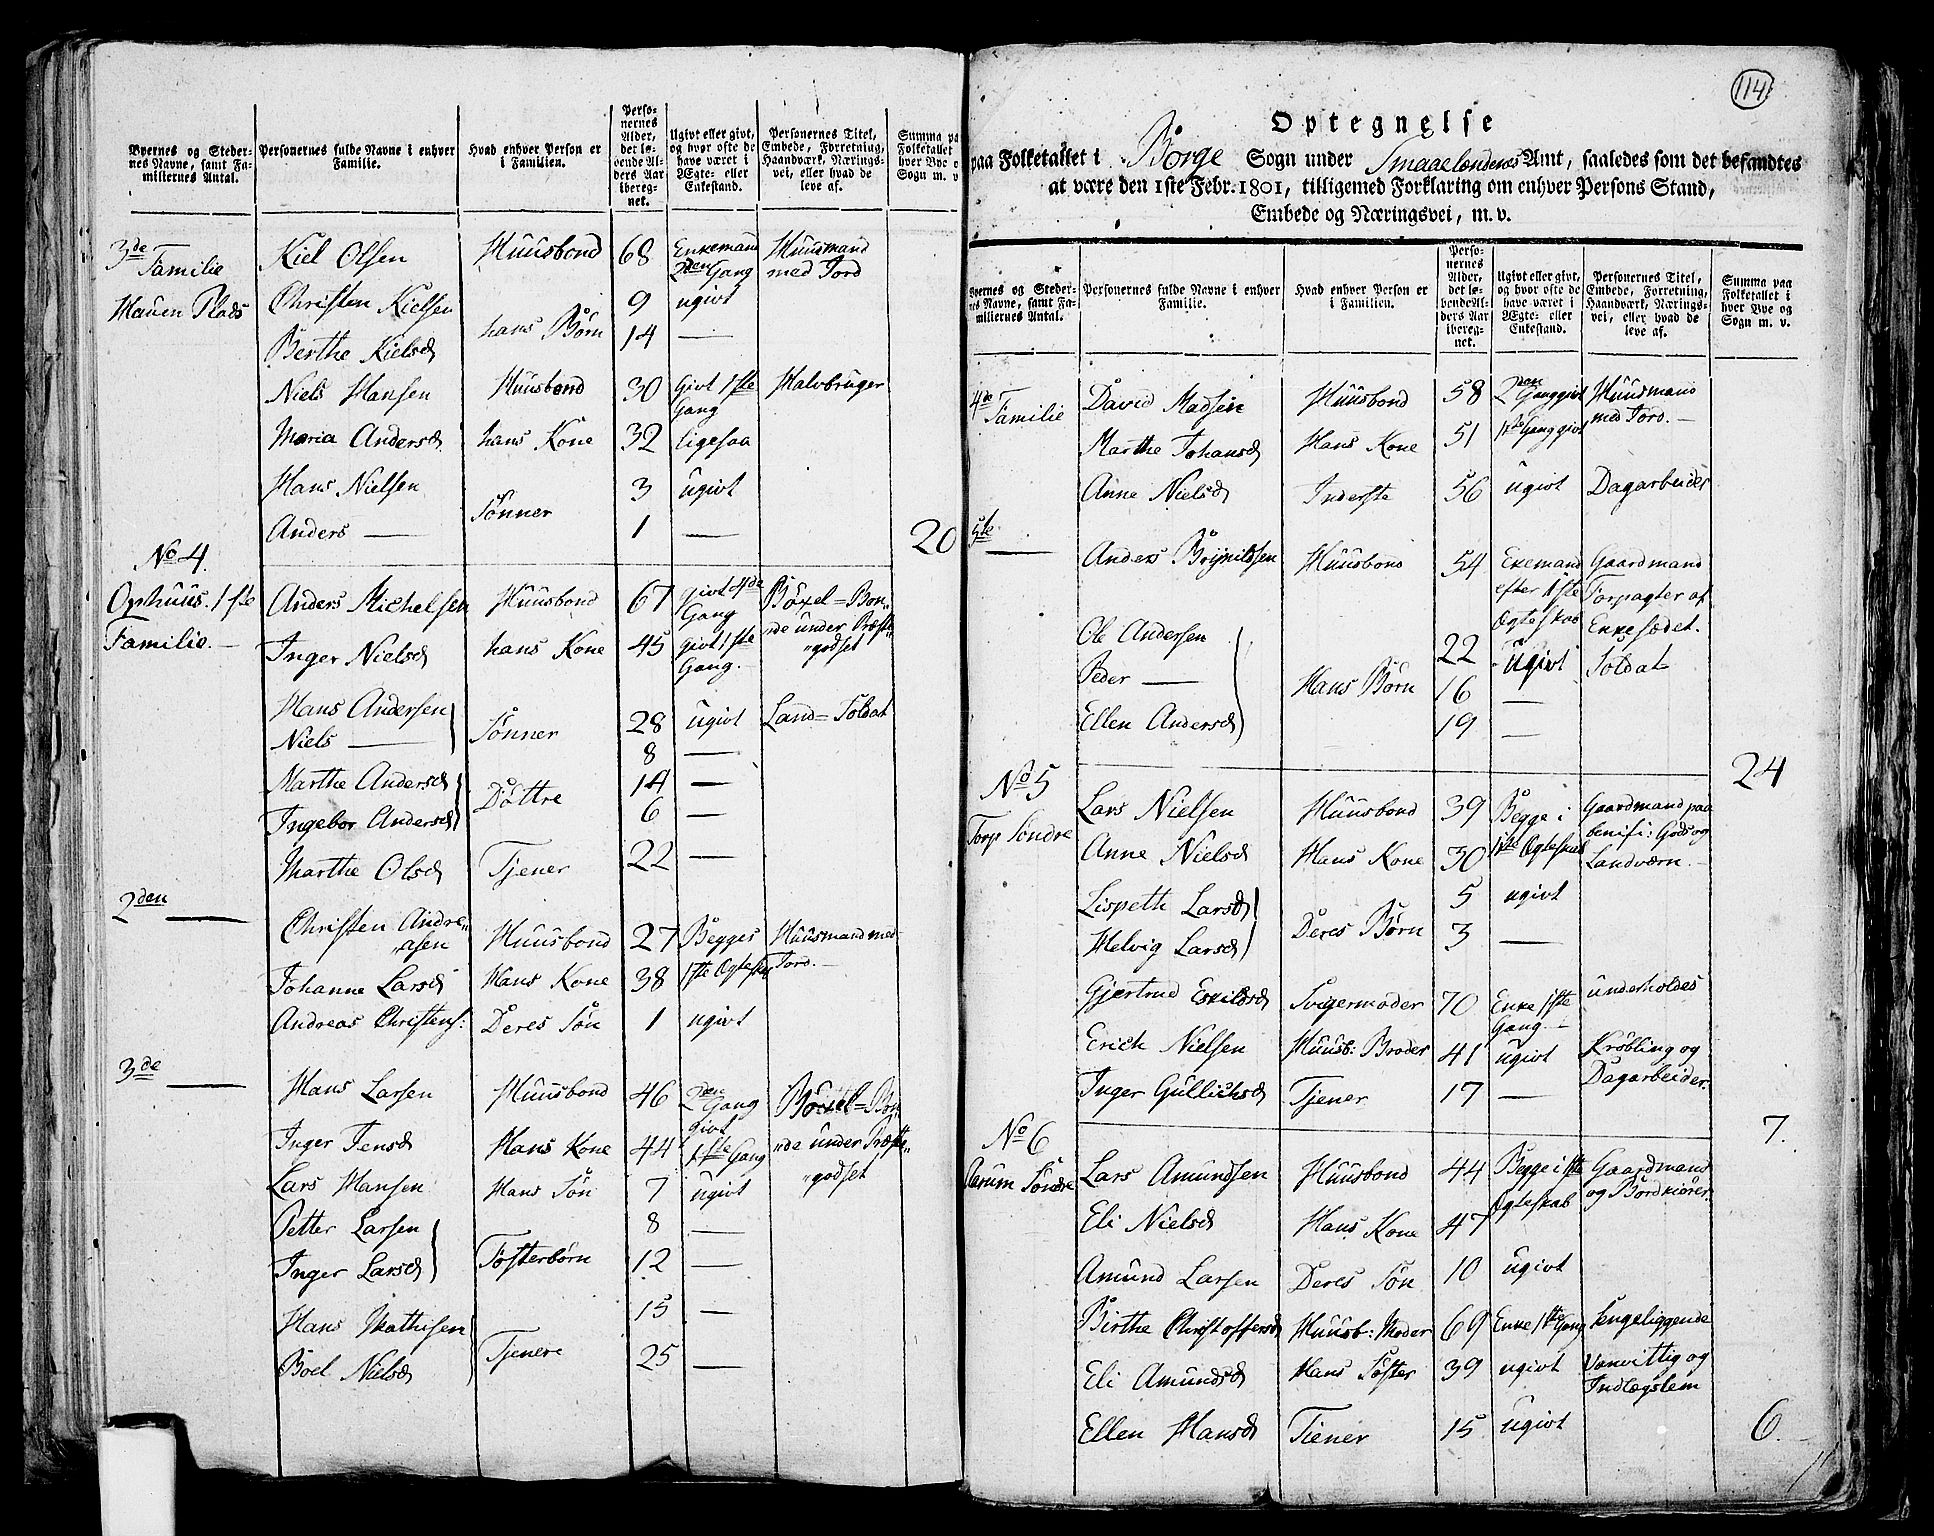 Byernes og Steder-
nes Navne, samt Fa-
miliernes Antal.
Personernes fulde Navne i enhver
Familie.
Hvad enhver Person er
i Familien.
Perso-
nernes
Alder,
det lø-
bende Al-
ders Aar
ibereg-
net.
Ugivt eller givt,
og hvor ofte de
have været i
Ægte- eller
Enkestand.
Personernes Titel,
Embede, Forretning,
Haandværk, Nærings-
vei, eller hvad de
leve af.
Summa pa
Folketallet
hver Bye o
Sogn m. v.
3de Familie Kiel Olsen Huusbond 68 Enkemand 2den Gang Huusmand med Jord
Hauen Plads Christen Kielsen hans Børn 9 ugivt
Berthe Kielsd 14 —
Niels Hansen Huusbond 30 Givt 1ste Gang Halvbruger
Maria Andersd hans Kone 32 ligesaa
Hans Nielsen Sønner 3 ugivt
Anders — 1 — 20
No 4
Ophuus. 1ste Familie. Anders Michelsen Huusbond 67 givt 4de Gang Bøxel=Bon„
Inger Nielsd hans Kone 45 Givt 1ste Gang. „de under Præste„ „godset
Hans Andersen Sønner 28 ugivt Land=Soldat
Niels — 8 —
Marthe Andersd Døttre 14 —
Ingebor Andersd 6 —
Marthe Olsd Tjener 22 —
2den — Christen Andre„ „asen Huusbond 27 Begges Huusmand med
Johanne Larsd Hans Kone 38 1ste Ogteskb Jord. —
Andreas Christens: Deres Søn 1 ugivt
3de — Hans Larsen Huusbond 46 2den Gang givt Bøxel=Bon
Inger Jensd Hans Kone 44 1ste Gang „de under Præste„
Lars Hansen Hans Søn 7 ugivt „godset
Petter Larsen Fosterbørn 8 —
Inger Larsd 12 —
Hans Mathisen Tjenere 15 —
Boel Nielsd 25 —
114
Optegnelse
paa Folketallet i Borge Sogn under Smaaelændenes Amt, saaledes som det befandtes
at være den 1ste Febr. 1801, tilligemed Forklaring om enhver Persons Stand,
Embede og Næringsvei, m. v.
Byernes og Steder-
nes Navne, samt Fa-
miliernes Antal.
Personernes fulde Navne i enhver
Familie.
Hvad enhver Person er
i Familien.
Perso-
nernes
Alder,
det lø-
bende Al-
ders Aar
ibereg-
net.
Ugivt eller givt,
og hvor ofte de
have været i
Ægte- eller
Enkestand.
Personernes Titel,
Embede, Forretning,
Haandværk, Nærings-
vei, eller hvad de
leve af.
Summa paa
Folketallet i
hver Bye og
Sogn m. v.
4de Familie David Madsen Huusbond 58 2den Gang givt Huusmand med Jord. —
Marthe Johansd Hans Kone 51 1ste Gang givt
Anne Nielsd Inderste 56 ugivt Dagarbeider
5te — Anders Brynildsen Huusbond 54 Enkemand Gaardmand
efter 1ste Forpagter af
Ole Andersen 22 Ogteskab Enkesædet.
Peder — Hans Børn 16 Ugivt Soldat
Ellen Andersd 19 —
24
No 5
Torp Søndre Lars Nielsen Huusbond 39 Begge i Gaardmand paa
Anne Nielsd Hans Kone 30 1ste Ogteskab benifi: Gods og
Lispeth Larsd Deres Børn 5 ugivt Landværn. —
Helvig Larsd 3 —
Gjertrud Eskildsd Svigermoder 70 Enke 1ste Gang. — underholdes
Erich Nielsen Huusb: Broder 41 ugivt Krøbling og
Inger Gullichsd Tjener 17 — Dagarbeider.
7.
No 6
Aarum Søndre Lars Amundsen Huusbond 44 Begge i 1ste Gaardmand
Eli Nielsd Hans Kone 47 Ogteskab og Bordkiører.
Amund Larsen Deres Søn 10 ugivt
Birthe Christoffersd Huusb: Moder 69 Enke 1ste Gang Sengeliggende
Eli Amundsd Hans Søster 39 ugivt Vanvittig og
Indlægslem
Ellen Hansd Tiener 15 ugivt 6.